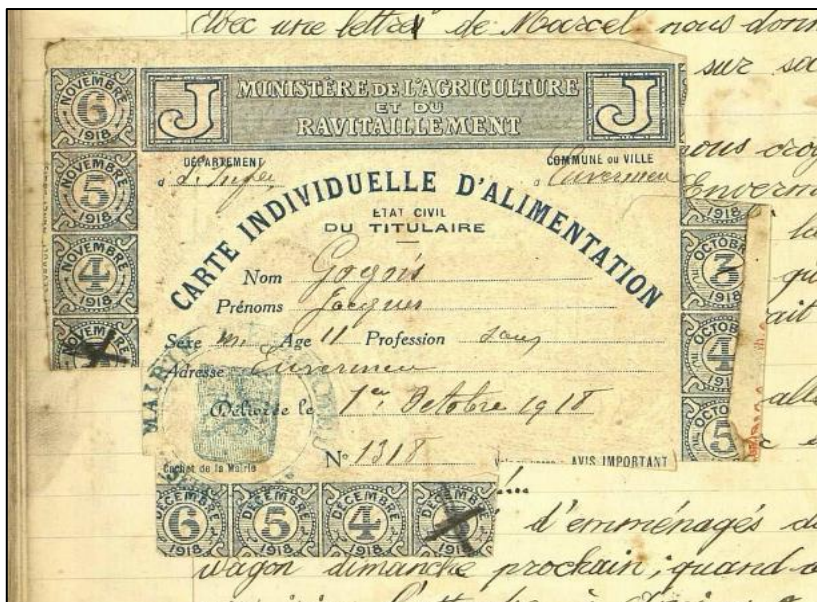 Avec une lettre de Marcel nous donn
sur sa
J MINISTÈRE DE L'AGRICULTURE J
ET DU
RAVITAILLEMENT
DÉPARTEMENT
COMMUNE OU VILLE
d
S. Infre
à Envermeu
CARTE INDIVIDUELLE D'ALIMENTATION
ETAT CIVIL
DU TITULAIRE
Nom Gognis
Prénoms Jacques
Sexe m. Age 11 Profession sans
Adresse Envermeu
Délivrée le 1er Octobre 1918
N° 1318
Cachet de la Mairie
AVIS IMPORTANT
MAIRIE
NOVEMBRE
6
1918
NOVEMBRE
5
1918
NOVEMBRE
4
1918
NOVEMBRE
1918
OCTOB
3
1918
4
1918
OCTO
5
DÉCEMBRE DÉCEMBRE DÉCEMBRE DÉCEMBRE
6 5 4
1918 1918 1918 1918
nous croy
Enverm
la
qu
rait
all
d'emménagés d
wagon dimanche prochain; quand